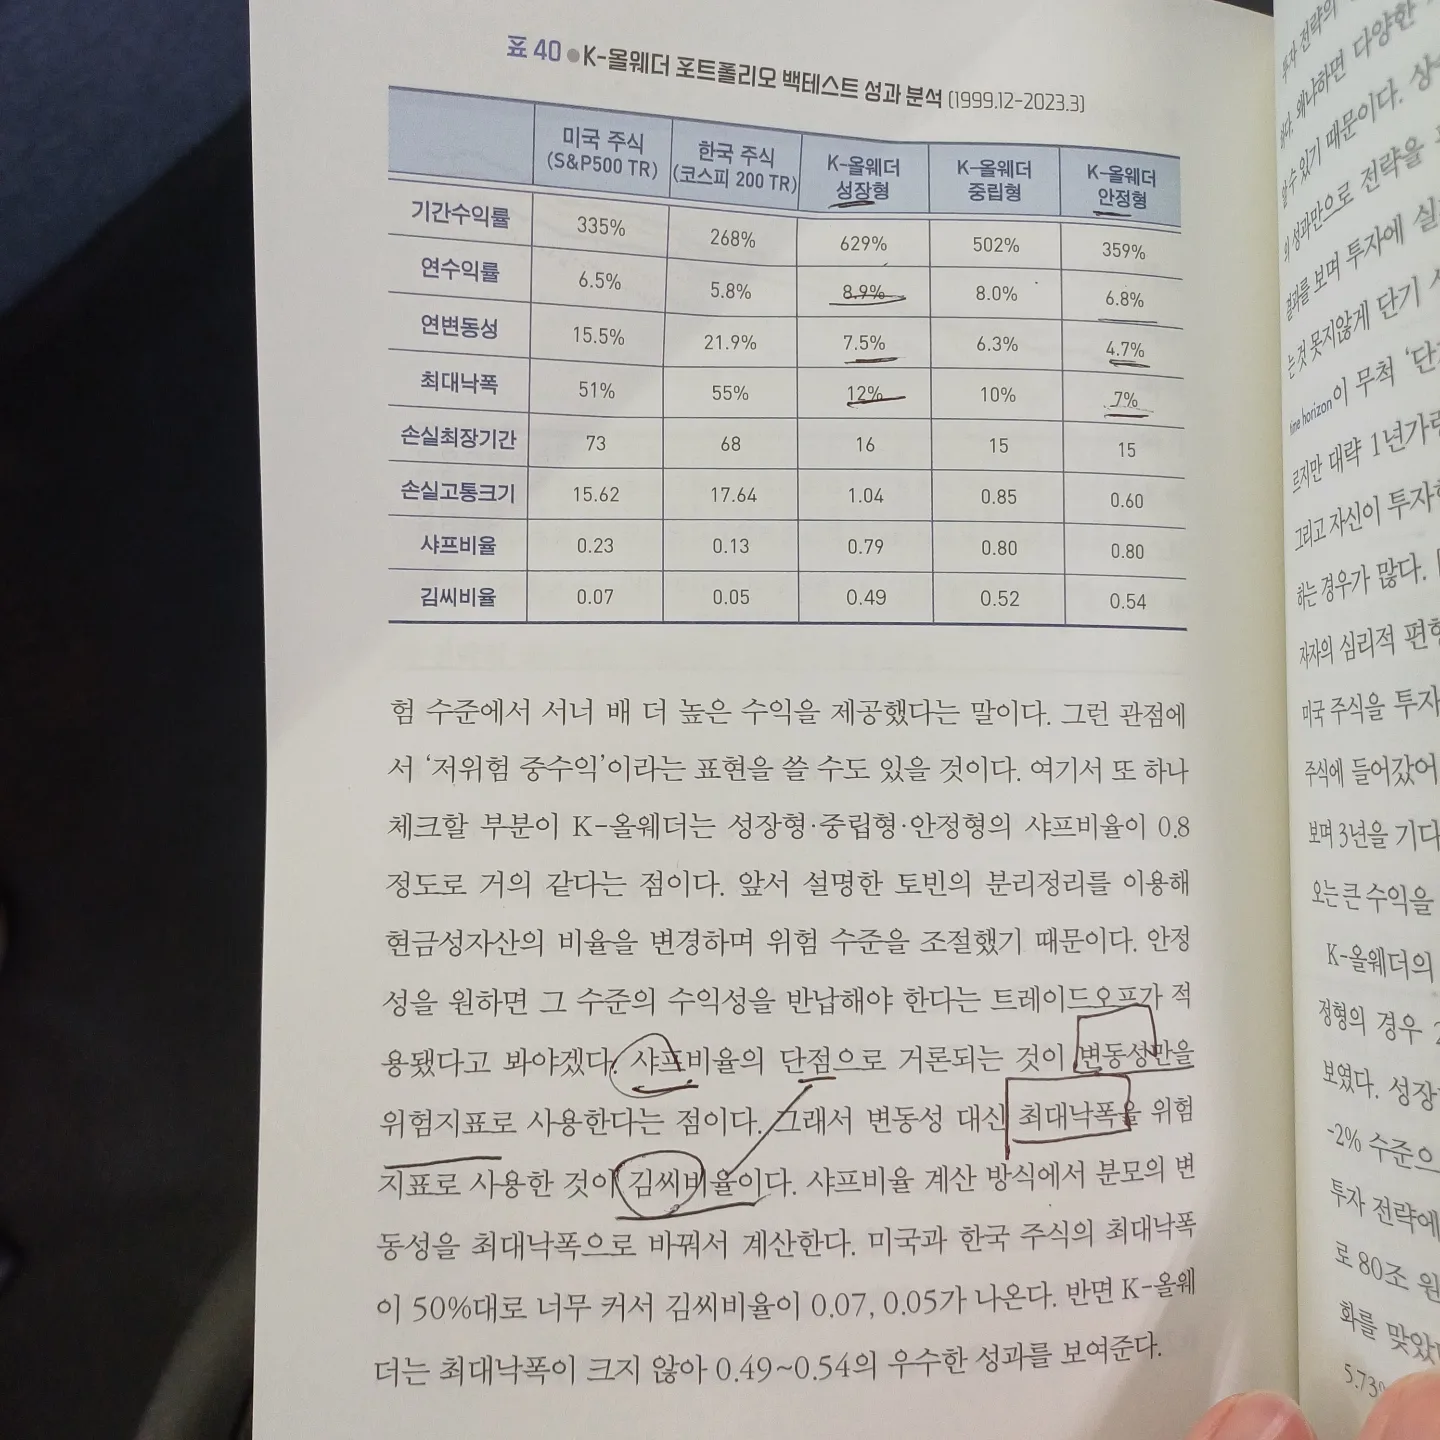 표 40 ● K-올웨더 포트폴리오 백테스트 성과 분석 (1999.12-2023.3)
미국 주식 (S&P500 TR) 한국 주식 (코스피 200 TR) K-올웨더 성장형 K-올웨더 중립형 K-올웨더 안정형
기간수익률 335% 268% 629% 502% 359%
연수익률 6.5% 5.8% 8.9% 8.0% 6.8%
연변동성 15.5% 21.9% 7.5% 6.3% 4.7%
최대낙폭 51% 55% 12% 10% 7%
손실최장기간 73 68 16 15 15
손실고통크기 15.62 17.64 1.04 0.85 0.60
샤프비율 0.23 0.13 0.79 0.80 0.80
김씨비율 0.07 0.05 0.49 0.52 0.54
험 수준에서 서너 배 더 높은 수익을 제공했다는 말이다. 그런 관점에
서 ‘저위험 중수익’이라는 표현을 쓸 수도 있을 것이다. 여기서 또 하나
체크할 부분이 K-올웨더는 성장형·중립형·안정형의 샤프비율이 0.8
정도로 거의 같다는 점이다. 앞서 설명한 토빈의 분리정리를 이용해
현금성자산의 비율을 변경하며 위험 수준을 조절했기 때문이다. 안정
성을 원하면 그 수준의 수익성을 반납해야 한다는 트레이드오프가 적
용됐다고 봐야겠다. 샤프비율의 단점으로 거론되는 것이 변동성만을
위험지표로 사용한다는 점이다. 그래서 변동성 대신 최대낙폭을 위험
지표로 사용한 것이 김씨비율이다. 샤프비율 계산 방식에서 분모의 변
동성을 최대낙폭으로 바꿔서 계산한다. 미국과 한국 주식의 최대낙폭
이 50%대로 너무 커서 김씨비율이 0.07, 0.05가 나온다. 반면 K-올웨
더는 최대낙폭이 크지 않아 0.49~0.54의 우수한 성과를 보여준다.
투자 전략의
하다. 왜냐하면 다양한
알 수 있기 때문이다.
의 성과만으로 전략을
결과를 보며 투자에
는 것 못지않게 단기
time horizon이 무척 ‘단
르지만 대략 1년가
그리고 자신이 투자
하는 경우가 많다.
자자의 심리적 편
미국 주식을 투자
주식에 들어갔어
보며 3년을 기다
오는 큰 수익을
K-올웨더의
정형의 경우
보였다. 성장
-2% 수준으
투자 전략에
로 80조 원
화를 맞았